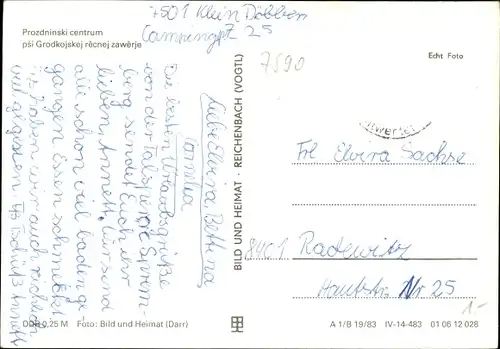 7501 Klein Döbbern
Campingpl. 25
Prozdninski centrum
pśi Grodkojskej rěcnej zawěrje
Echt Foto
7590
Liebe Elvira, Bettina
Familie
Die besten Urlaubsgrüße
von der Talsperre Sprem-
berg sendet Euch Eure
lieben Annett. Wir sind
alle schon viel baden ge-
gangen. Essen schmeckt
Haben wir auch reichlich
viel gegessen Tschüß Annett
BILD UND HEIMAT · REICHENBACH (VOGTL)
Frl Elvira Sachse
8401 Radewitz
Hauptstr. Nr 25
1.-
DDR 0,25 M Foto: Bild und Heimat (Darr)
A 1/B 19/83 IV-14-483 01 06 12 028